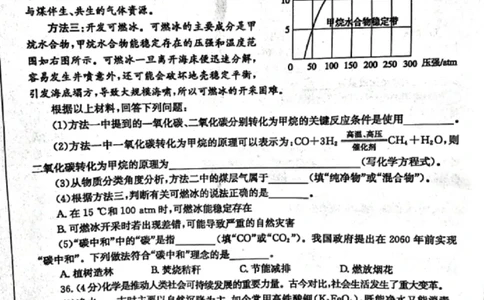 与煤伴生、共生的气体资源。
方法三:开发可燃冰。可燃冰的主要成分是甲
烷水合物,甲烷水合物能稳定存在的压强和温度范
围如右图所示。可燃冰一旦离开海床便迅速分解,
容易发生井喷意外,还可能会破坏地壳稳定平衡,
引发海底塌方,导致大规模海啸,所以可燃冰的开采困难。
10
5
0 50 100 150 200 250 300 压强/atm
甲烷水合物稳定带
根据以上材料,回答下列问题:
(1)方法一中提到的一氧化碳、二氧化碳分别转化为甲烷的关键反应条件是使用________。
(2)方法一中一氧化碳转化为甲烷的原理可以表示为:CO+3H₂ 高温、高压 催化剂 CH₄+H₂O,则
二氧化碳转化为甲烷的原理为________(写化学方程式)。
(3)从物质分类角度分析,方法二中的煤层气属于________(填“纯净物”或“混合物”)。
(4)根据方法三,判断有关可燃冰的说法正确的是________。
A. 在 15 ℃和 100 atm 时,可燃冰能稳定存在
B. 可燃冰开采时若出现差错,可能导致严重的自然灾害
(5)“碳中和”中的“碳”是指________(填“CO”或“CO₂”)。我国政府提出在 2060 年前实现
“碳中和”。下列做法符合“碳中和”理念的是________。
A. 植树造林 B. 焚烧秸秆 C. 节能减排 D. 燃放烟花
36. (4 分)化学是推动人类社会可持续发展的重要力量。古今对比,社会生活发生了重大变革。